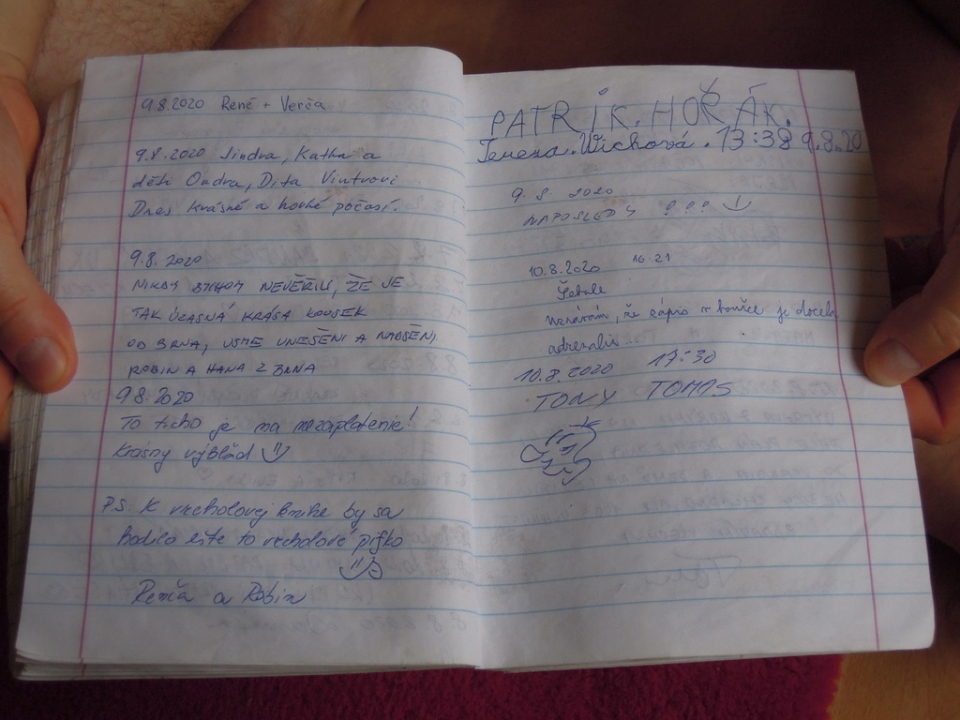 9.8.2020 René + Verča
9.8.2020 Jindra, Katka a
děti Ondra, Dita Vintrovi
Dnes krásné a horké počasí.
9.8.2020
NIKDY BYCHOM NEVĚŘILI, ŽE JE
TAK ÚŽASNÁ KRÁSA KOUSEK
OD BRNA, JSME UNEŠENI A NADŠENI.
ROBIN A HANA Z BRNA
9.8.2020
To ticho je na nezaplatenie!
Krásny výhľad
P.S. K vrcholovej knihe by sa
hodilo ešte to vrcholové pifko
Renča a Robin
PATRIK. HOŘÁK.
Tereza. Wichová. 13:38 9.8.20
9. 8 2020
NAPOSLEDY ???
10.8.2020 16:21
, že v bouřce je docela
10.8.2020 17:30
TONY TOMAS